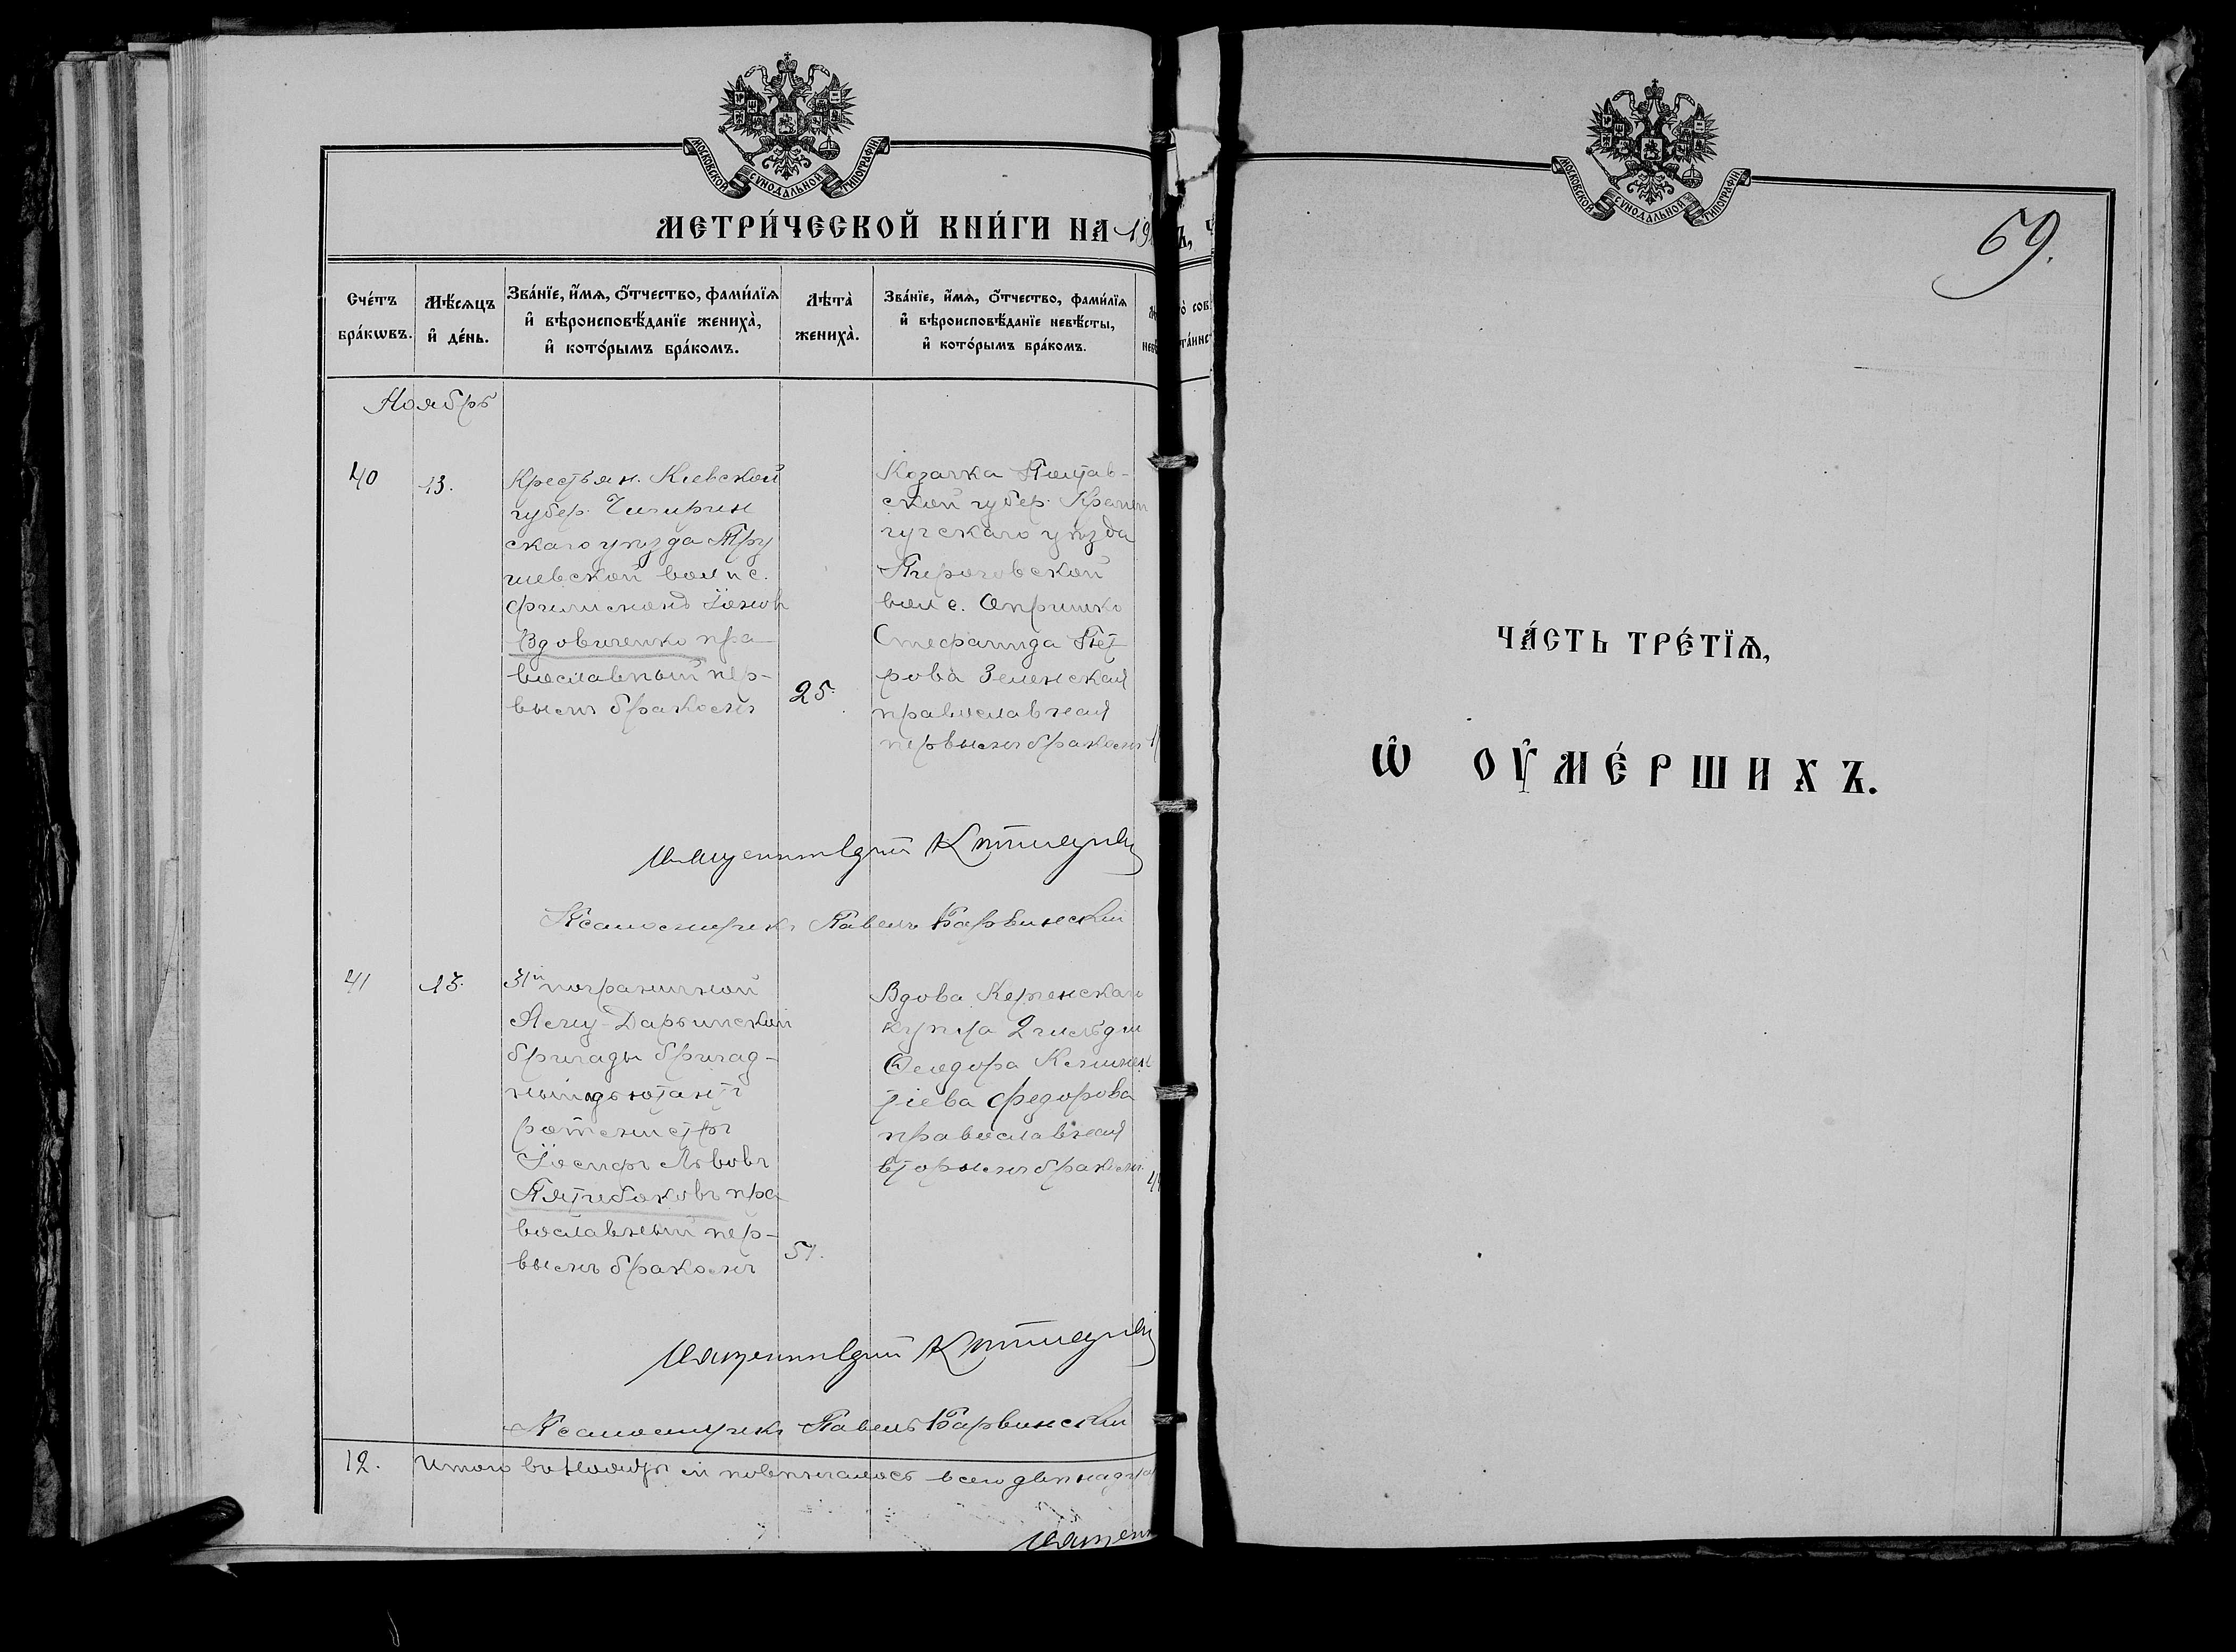 МОСКОВСКОЙ СѴНОДАЛЬНОЙ ТИПОГРАФІИ
МЕТРИ́ЧЕСКОЙ КНИ́ГИ НА 19
Сче́тъ бра́кωвъ.
Мѣ́сяцъ и҆ де́нь.
Зва́нїе, и҆́мѧ, ѻ҆́тчество, фами́лїѧ
и҆ вѣроисповѣ́данїе жениха̀,
и҆ кото́рымъ бра́комъ.
Лѣта̀ жениха̀.
Зва́нїе, и҆́мѧ, ѻ҆́тчество, фами́лїѧ
и҆ вѣроисповѣ́данїе невѣ́сты,
и҆ кото́рымъ бра́комъ.
Ноябрь
40
13.
Крестьян. Кіевской
губер. Чигирин
скаго уѣзда Тру
шевской вол и с.
Филимонъ Іоновъ
Вдовиченко пра-
вославный пер-
вымъ бракомъ
25.
Козачка Полтав-
ской губер. Кремен
чугскаго уѣзда
Пироговской
вол с. Опришко
Стефанида Пет
рова Зеленская
православная
первымъ бракомъ
Псаломщикъ Павелъ Барвинскій
41
13.
31й пограничной
Аму-Дарьинской
бригады бригад-
ный адъютантъ
ротмистръ
Іосифъ Львовъ
Пятибоковъ пра
вославный пер-
вымъ бракомъ
51.
Вдова Керченскаго
купца 2 гильдіи
Ѳеодора Климен
тіева Федорова
православная
вторымъ бракомъ
Псаломщикъ Павелъ Барвинскій
12. Итого въ Ноябрѣ м повѣнчалось всего двѣнадца
МОСКОВСКОЙ СѴНОДАЛЬНОЙ ТИПОГРАФІИ
69.
ЧА́СТЬ ТРЕ́ТЇѦ,
Ѡ҆ ОУ҆МЕ́РШИХЪ.